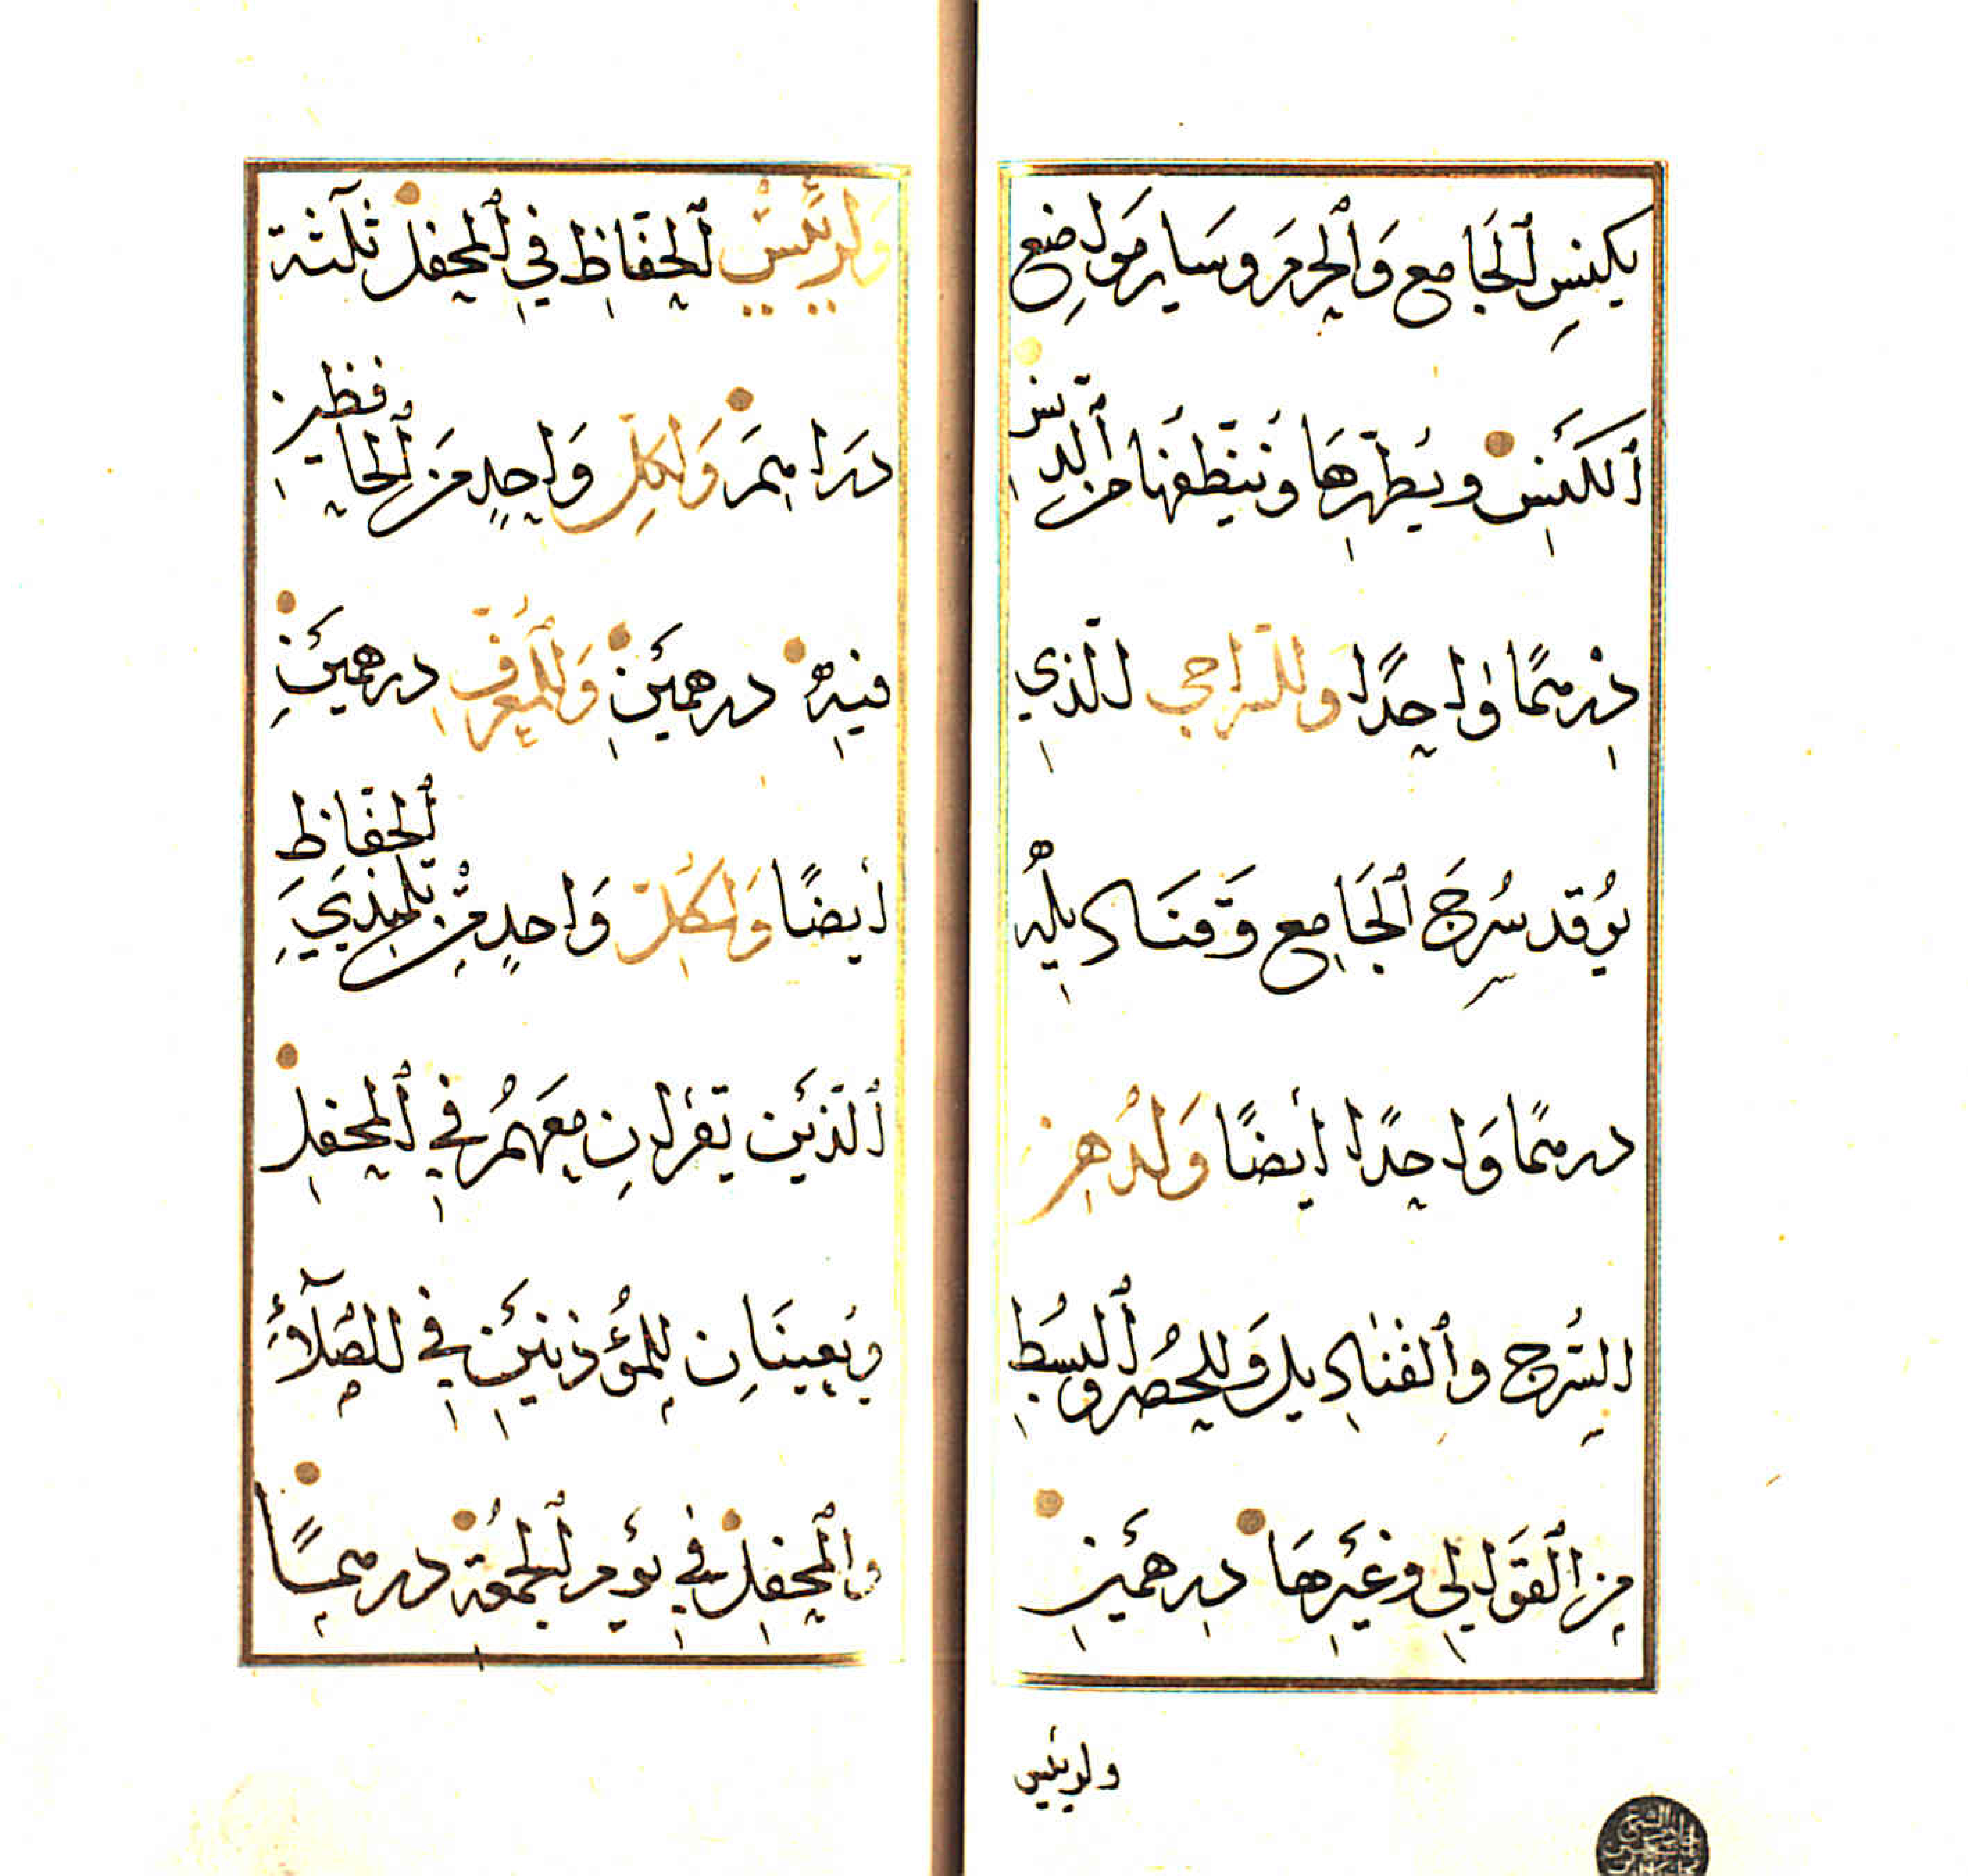 يكنس الجامع والحرم وساير مواضع
الكنس ويطهرها وينظفها من الدنس
درهما واحدا وللسراجي الذي
يوقد سرج الجامع وقناديله
درهما واحدا أيضا ولدهن
السرج والقناديل وللحصر والبسط
من القوالي وغيرها درهمين
ولرئيس
ولرئيس الحفاظ في المحفل ثلثة
دراهم ولكل واحد من الحافظين
فيه درهمين وللمعرف درهمين
أيضا ولكل واحد من تلميذي الحفاظ
الذين يقران معهم في المحفل
ويعينان للمؤذنين في الصلاة
والمحفل في يوم الجمعة درهما